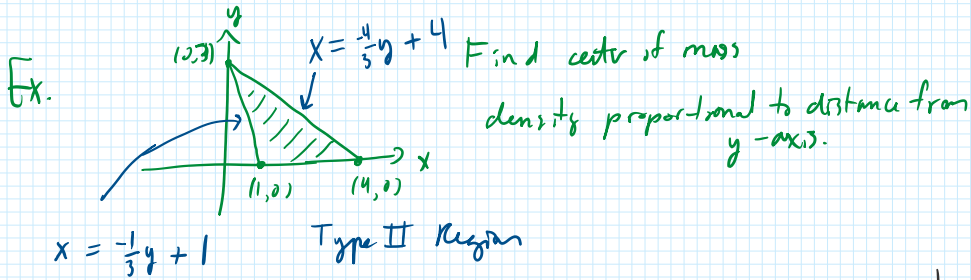 y
(0,3)
x = -4/3 y + 4
Find center of mass
Ex.
density proportional to distance from
y-axis.
x
(1,0)
(4,0)
x = -1/3 y + 1
Type II Region